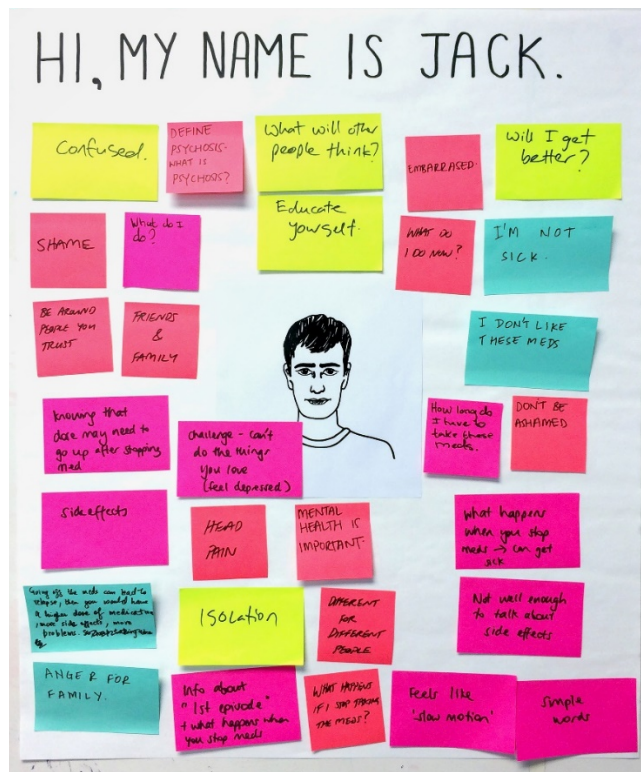 HI, MY NAME IS JACK.
Confused.
DEFINE
PSYCHOSIS.
WHAT IS
PSYCHOSIS?
What will other
people think?
EMBARRASED.
Will I get
better?
SHAME
What do I
do?
Educate
yourself.
WHAT DO
I DO NOW?
I'M NOT
SICK.
BE AROUND
PEOPLE YOU
TRUST
FRIENDS
&
FAMILY
I DON'T LIKE
THESE MEDS
Knowing that
dose may need to
go up after stopping
med
challenge - can't
do the things
you love
(feel depressed)
How long do
I have to
take these
meds.
DON'T BE
ASHAMED
side effects
HEAD
PAIN
MENTAL
HEALTH IS
IMPORTANT.
What happens
when you stop
meds → can get
sick
Going off the meds can lead to
relapse, then you would have
a higher dose of medication
, more side effects, more
problems.
ISOLATION
DIFFERENT
FOR
DIFFERENT
PEOPLE
Not well enough
to talk about
side effects
ANGER FOR
FAMILY.
Info about
"1st episode"
+ what happens when
you stop meds
WHAT HAPPENS
IF I STOP TAKING
THE MEDS?
Feels like
'slow motion'
simple
words